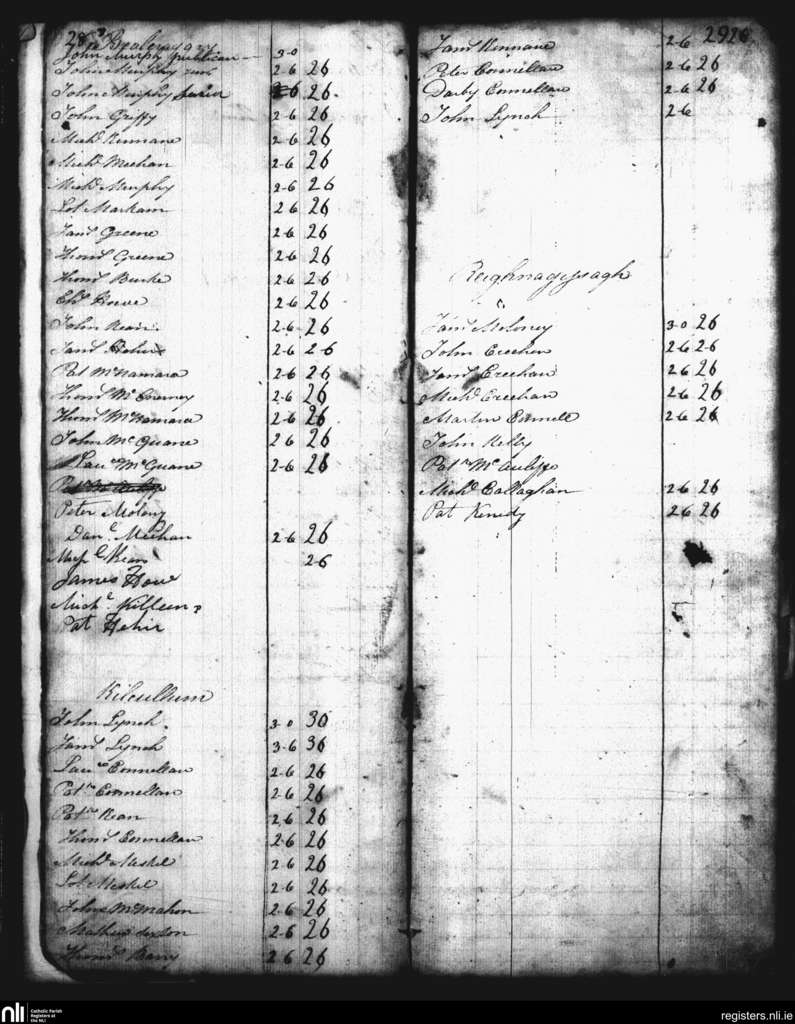 28
John Murphy publican 3-0
John Murphy 2-6 26
John Murphy 2-6 26
John Griffy 2-6 26
Michl Kinnane 2-6 26
Michl Meehan 2-6 26
Michl Murphy 2-6 26
Lot Markam 2-6 26
Jams Greene 2-6 26
Thoms Greene 2-6 26
Thoms Burke 2-6 26
2-6 26
John Kean 2-6 26
Jams 2-6 2-6
Pat McNamara 2-6 26
Thoms Mc Enerney 2-6 26
Thoms McNamara 2-6 26
John Mc Guane 2-6 26
Laure McGuane 2-6 26
Peter Molony
Danl Meehan 2-6 26
Kean 2-6
James How
Michl Killeen
Pat Hehir
Kilcullum
John Lynch 3-0 30
Jams Lynch 3-6 36
Laure Connellan 2-6 26
Patk Connellan 2-6 26
Patk Kean 2-6 26
Thoms Connellan 2-6 26
Michl Meskel 2-6 26
Lot Meskel 2-6 26
John McMahon 2-6 26
Mathew Sexton 2-6 26
Thoms Barry 2-6 26
Jams Kinnane 2-6
Peter Connellan 2-6 26
Darby Connellan 2-6 26
John Lynch 2-6
Jams Moloney 3-0 26
John Creehan 2-6 2-6
Jams Creehan 2-6 26
Michl Creehan 2-6 26
Martin Connell 2-6 26
John Kelly
Patk Mc Auliffe
Michl Callaghan 2-6 26
Pat Kenedy 2-6 26
nli Catholic Parish
Registers at
the NLI
registers.nli.ie